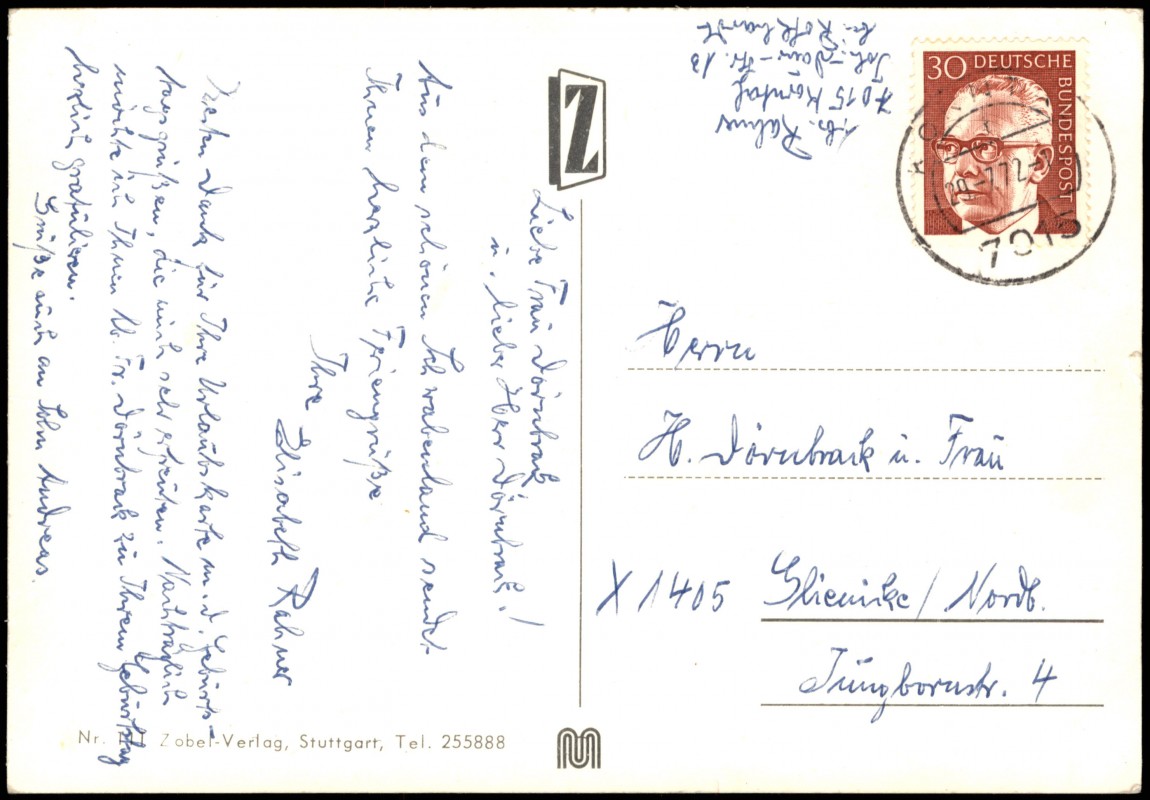 Liebe Frau Dörnbrack
u. lieber Herr Dörnbrack!
Aus dem schönen Schwabenland sendet
Ihnen herzliche Feriengrüße
Ihre
Elisabeth Rahner
Vielen Dank für Ihre Urlaubskarte m. d. Geburts-
tagsgrüßen, die mich sehr erfreuten. Nachträglich
möchte ich Ihnen lb. Fr. Dörnbrack zu Ihrem Geburtstag
herzlich gratulieren.
Grüße auch an Sohn Andreas.
Nr. Zobel-Verlag, Stuttgart, Tel. 255888
Z
Abs. Rahner
7015 Korntal
Joh.-Daur-Str. 13
bei
30 DEUTSCHE
BUNDESPOST
29.-7.72-
7015
Herrn
H. Dörnbrack u. Frau
X 1405 Glienicke/Nordb.
Jungbornstr. 4